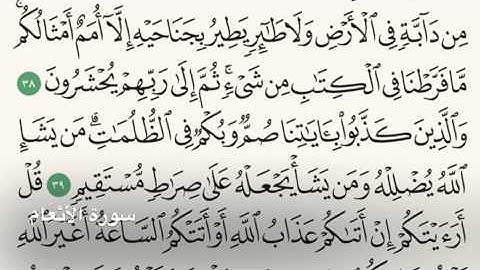 مِن دَآبَّةٍ فِى ٱلْأَرْضِ وَلَا طَٰٓئِرٍ يَطِيرُ بِجَنَاحَيْهِ إِلَّآ أُمَمٌ أَمْثَالُكُم ۚ
مَّا فَرَّطْنَا فِى ٱلْكِتَٰبِ مِن شَىْءٍ ۚ ثُمَّ إِلَىٰ رَبِّهِمْ يُحْشَرُونَ ٣٨
وَٱلَّذِينَ كَذَّبُوا۟ بِـَٔايَٰتِنَا صُمٌّ وَبُكْمٌ فِى ٱلظُّلُمَٰتِ ۗ مَن يَشَإِ
ٱللَّهُ يُضْلِلْهُ وَمَن يَشَأْ يَجْعَلْهُ عَلَىٰ صِرَٰطٍ مُّسْتَقِيمٍ ٣٩ قُلْ
سورة الأنعام
أَرَءَيْتَكُمْ إِنْ أَتَىٰكُمْ عَذَابُ ٱللَّهِ أَوْ أَتَتْكُمُ ٱلسَّاعَةُ أَغَيْرَ ٱللَّهِ